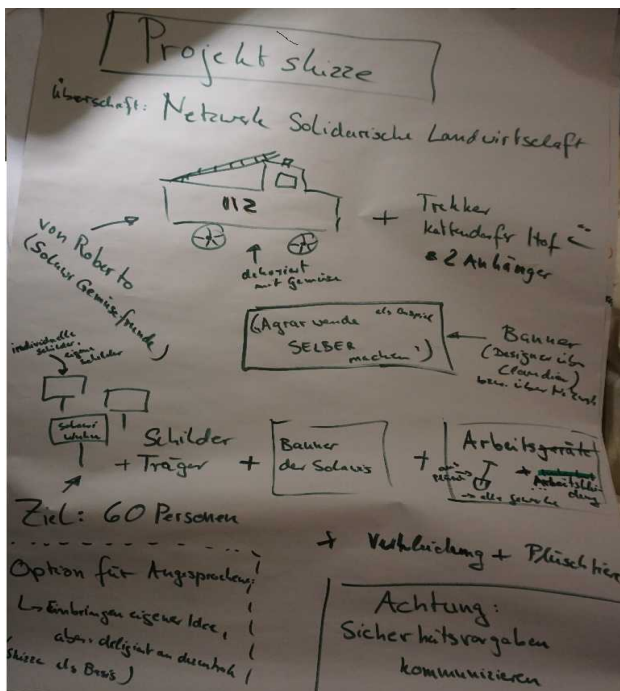 Projektskizze
überschaft: Netzwerk Solidarische Landwirtschaft
112
von Roberto
(Solawi Gemüsefreunde)
dekoriert
mit Gemüse
+ Trekker
Kattendorfer Hof
2 Anhänger
("Agrarwende
SELBER
machen")
als Beispiel
Banner
(Designer über
Claudia)
bzw. über
individuelle
Schilder,
eigene
Schilder
Solawi
Schilder
+ Träger
+ Banner
der Solawis
+ Arbeitsgeräte
+ Arbeitsklei
dung
→ alle Gewerke
Ziel: 60 Personen
+ Verkleidung + Plüschtiere
Option für Angesprochene:
↳ Einbringen eigener Idee,
aber: deligiert an dezentrale
(Skizze als Basis)
Achtung:
Sicherheitsvorgaben
kommunizieren